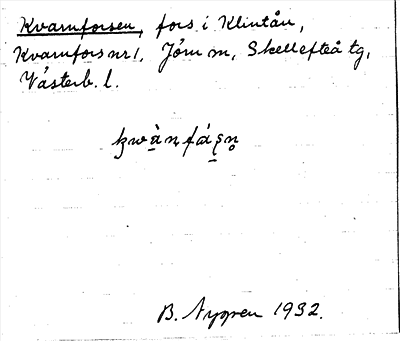 Kvarnforsen, fors i Klintån,
Kvarnfors nr 1, Jörn sn, Skellefteå tg,
Västerb. l.
B. Nygren 1932.